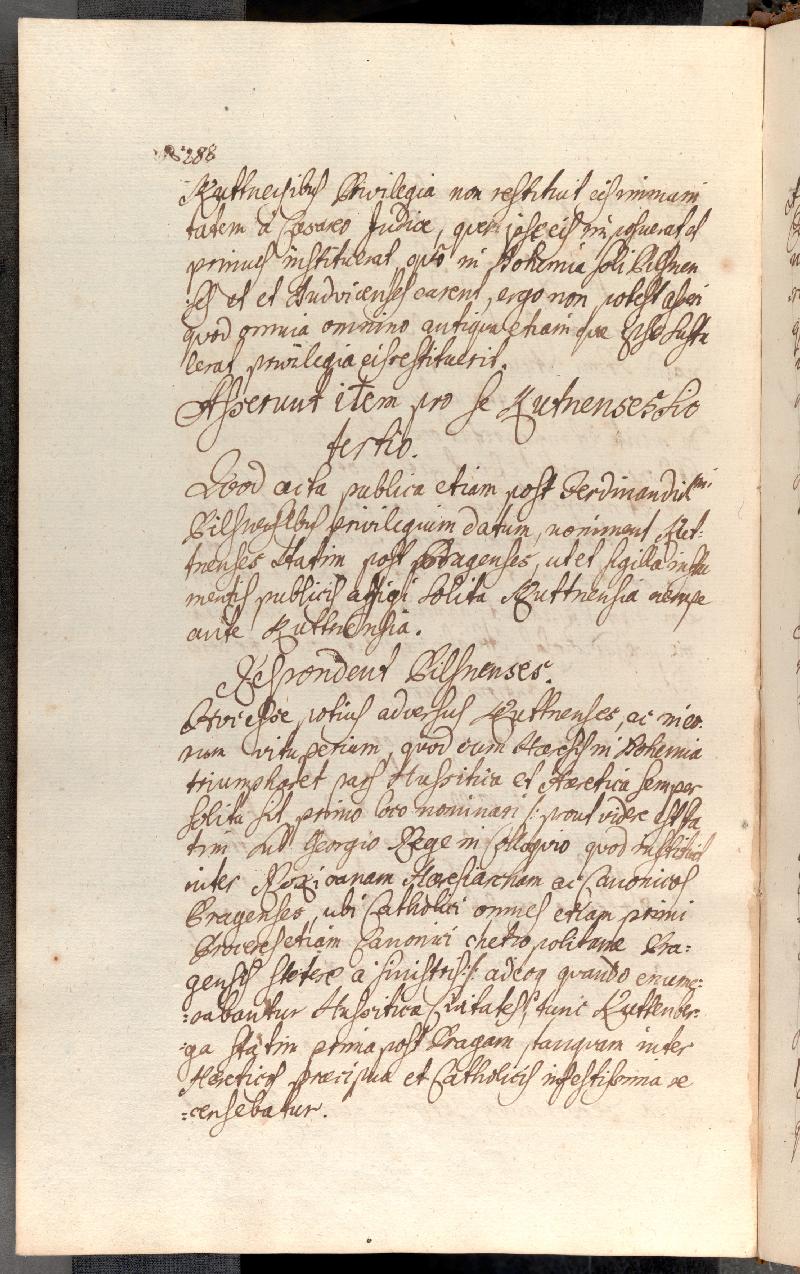 288
Kuttnensibus Privilegia non restituit eis immuni
tatem a Cæsareo Judice, quem ipse eis imposuerat et
primus instituerat quô in Bohemia soli Pilsnen
ses et et Budvicenses carent, ergo non potest asseri
quod omnia omnino antiqua etiam quæ ipse sustu
lerat privilegia eis restituerit.
Asserunt item pro se Kutnenses Lio
tertio.
Quod acta publica etiam post Ferdinandi
Pilsnensibus privilegium datum, nominent Kut-
tnenses statim post Pragenses, ut et sigilla instru
mentis publicis affigi solita Kuttnensia nempe
ante Kuttnensia.
Respondent Pilsnenses.
Hoc esse potius adversus Kuttnenses, ac in eo
rum vituperium, quod cum Hæresis in Bohemia
triumpharet pars Hussitica et Hæretica semper
solita sit primo loco nominari /: prout videre est sta
tim sub Georgio Rege in Colloquio quod instituit
inter Roxizanam Hæresiarcham ac Canonicos
Pragenses, ubi Catholici omnes etiam primi
Proceres etiam Canonici Metropolitanæ Pra:
gensis stetere a sinistris :/ adeoq quando enume:
:rabantur Hussiticæ Civitates, tunc Kuttenber:
:ga statim prima post Pragam, tanquam inter
Hæreticos præcipua et Catholicis infestissima re
:censebatur.